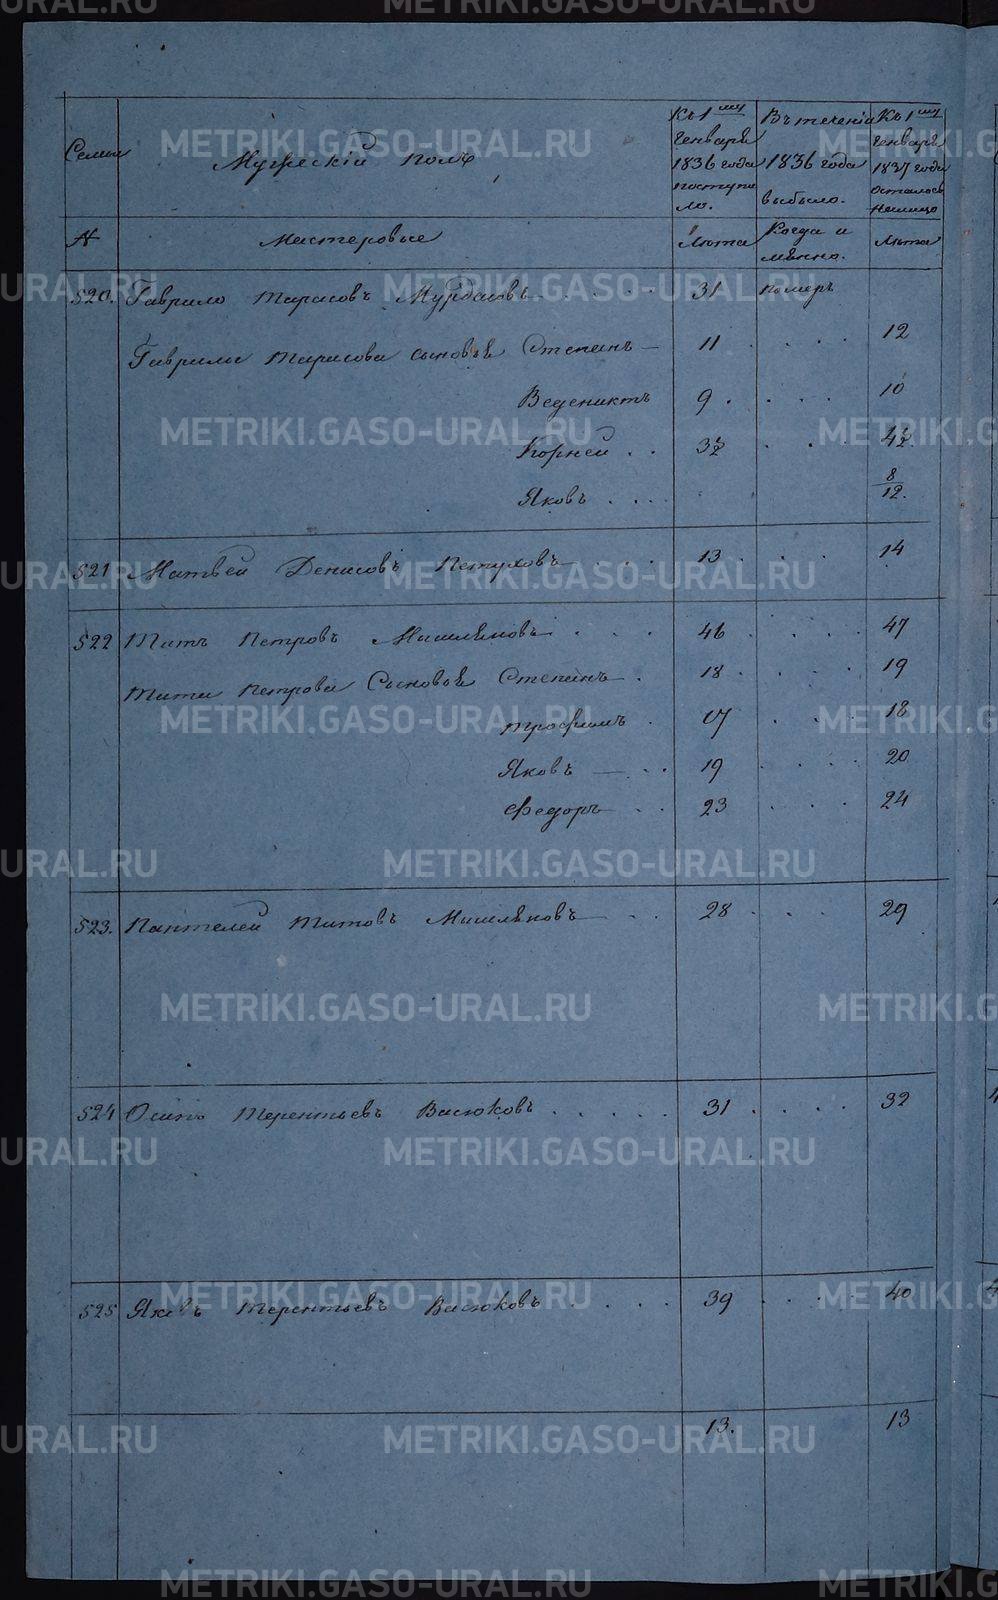 Семьи
Мужескій полъ
Къ 1му Генваря 1836 года поступило.
Въ теченіи 1836 года выбыло.
Къ 1му Генваря 1837 года осталось налицо
№
Мастеровые
Лѣта
Когда и
Лѣта
520. Гаврило Тарасовъ Мурдасовъ 31 померъ
Гаврилы Тарасова сыновья Степанъ 11 12
Ведениктъ 9 10
Корней 3½ 4½
Яковъ 8/12.
521 Матвей Денисовъ Петуховъ 13 14
522 Титъ Петровъ 46 47
Тита Петрова Сыновья Степанъ 18 19
Трофимъ 17 18
Яковъ 19 20
Федоръ 23 24
523. Пантелей Титовъ 28 29
524 Осипъ Терентьевъ Васюковъ 31 32
525 Яковъ Терентьевъ Васюковъ 39 40
13. 13
METRIKI.GASO-URAL.RU